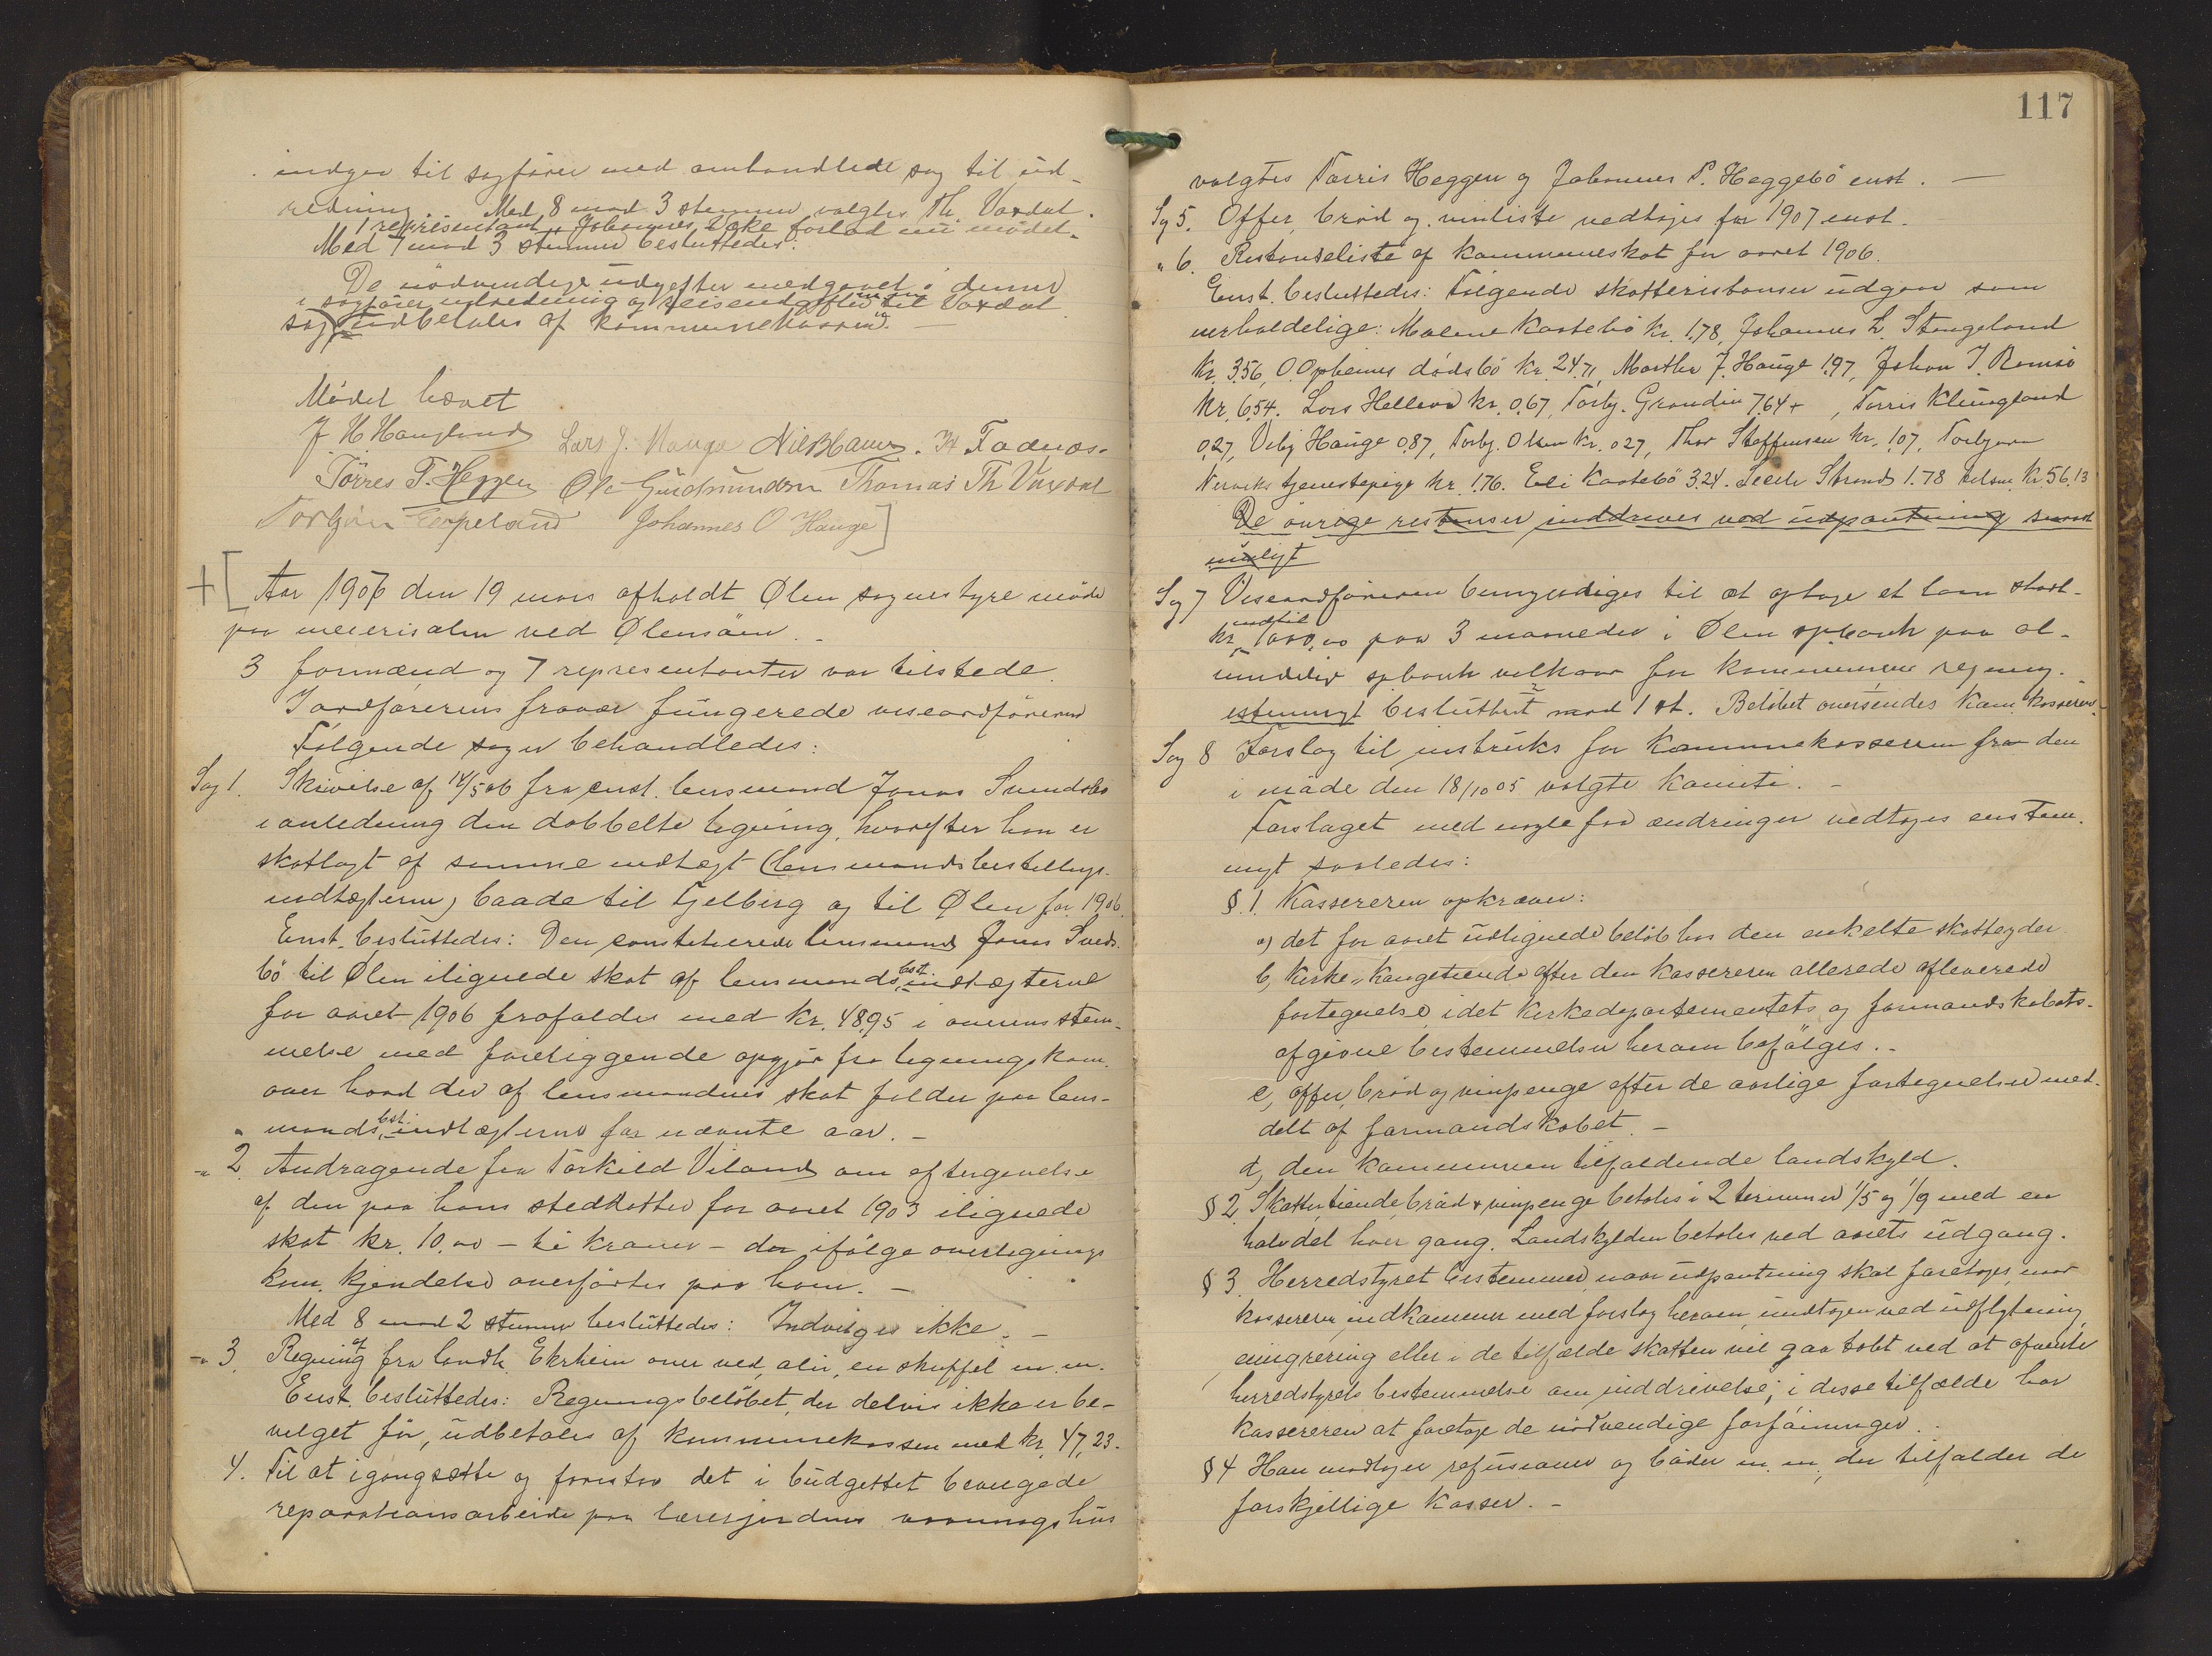 indgaa til sagfører med omhandlede sag til ud-
redning. Med 8 mod 3 stemmer valgtes Th. Vaxdal.
1 representant, Johannes Eike forlod nu mødet.
Med 7 mod 3 stemmer besluttedes:
De nødvendige udgifter medgaaet i denne
i sagfører, udredning og reiseudgifter til Vaxdal
sag udbetales af kommunekassen.
Mødet hævet
J. H. Haugland Lars J. Hauge Nils Hauge. H Fadnæs.
Tørres T. Heggen Ole Gudmundsen Thomas Th Vaxdal
Torbjørn Eerpeland Johannes O Hauge
Aar 1907 den 19 mars afholdt Ølen sognestyre møde
paa meierisalen ved Ølensøen.
3 formænd og 7 representanter var tilstede.
I ordførerens fravær fungerede viseordføreren
Følgende sager behandledes:
Sag 1. Skrivelse af 14/5 06 fra const. lensmand Jonas Svendsbø
i anledning den dobbelte ligning, hvorefter han er
skatlagt af samme indtægt (lensmandsbestillings-
indtægterne) baade til Fjelberg og til Ølen for 1906.
Enst. besluttedes: Den constituerede lensmand Jonas Svends-
bø til Ølen ilignede skat af lensmandsbest.indtægterne
for aaret 1906 frafaldes med kr. 48,95 i overensstem-
melse med foreliggende opgjør fra ligningskom.
over hvad der af lensmandens skat falder paa lens-
mandsbest.indtægterne for nævnte aar. -
" 2. Andragende fra Torkild Viland om eftergivelse
af den paa hans steddatter for aaret 1903 ilignede
skat kr. 10,00 - ti kroner - der ifølge overlignings
kom. kjendelse overførtes paa ham. -
Med 8 mod 2 stemmer besluttedes: Indvilges ikke. -
" 3. Regning af fra landh. Ekrheim over ved, alin, en skuffel m. m.
Enst. besluttedes: Regningsbeløbet, der delvis ikke er be-
vilget før, udbetales af kommunekassen med kr. 47,23.
4. Til at igangsætte og forestaa det i budgettet bevilgede
reparationsarbeide paa lærerjordens vaaningshus
117
valgtes Tørris Heggen og Johannes P. Heggebø enst. -
Sag 5. Offer, brød og vinliste vedtoges for 1907 enst.
" 6. Restanseliste af kommuneskat for aaret 1906.
Enst. besluttedes: Følgende skatterestanser udgaar som
uerholdelige: Malene Kaatebø kr. 1.78, Johannes L. Stangeland
kr. 3.56, O. Opheims dødsbo kr. 24.71, Martha J. Hauge 1.97, Johan J. Romsø
kr. 6.54. Lars Hellerø kr. 0.67, Torbj. Grandin 7.64 +, Tørris Klungland
0.27, Viby Hauge 0.87, Torbj. Olsen kr. 0.27, Thor Steffensen kr. 1.07, Torbjørn
Nerviks tjenestepige kr. 1.76. Eli Kaatebø 3.24. Secele Strand 1.78 tilsm. kr. 56.13
De øvrige restanser inddrives ved udpantning snarest
muligt
Sag 7 Viseordføreren bemyndiges til at optage et laan stort
kr. indtil 1000,00 paa 3 maaneder i Ølen spbank paa al-
mindelig spbank vilkaar for kommunens regning.
estemmigt besluttet mod 1 st. Beløbet oversendes Kom. kasseren.
Sag 8 Forslag til instruks for kommunekassereren fra den
i møde den 18/10 05 valgte komite. -
Forslaget med nogle faa ændringer vedtoges enstem-
migt saaledes:
§. 1. Kassereren opkræver:
a) det for aaret udlignede beløb hos den enkelte skatteyder
b, kirke- kongetiende efter den kassereren allerede afleverede
fortegnelse, idet kirkedepartementets og formandskabets
afgivne bestemmelser herom befølges. -
c, offer, brød og vinpenge efter de aarlige fortegnelser med-
delt af formandskabet. -
d, den kommunen tilfaldende landskyld.
§ 2. Skatter, tiende, brød & vinpenge betales i 2 terminer 1/5 og 1/9 med en
halvdel hver gang. Landskylden betales ved aarets udgang.
§ 3. Herredstyret bestemmer naar udpantning skal foretages, naar
kassereren indkommer med forslag herom, undtagen ved udflytning
emigrering eller i de tilfælde skatten vil gaa tabt ved at afvente
herredstyrets bestemmelse om inddrivelse; i disse tilfælde har
kassereren at foretage de nødvendige forføininger.
§ 4 Han modtager refusioner og bøder m. m. der tilfalder de
forskjellige kasser. -